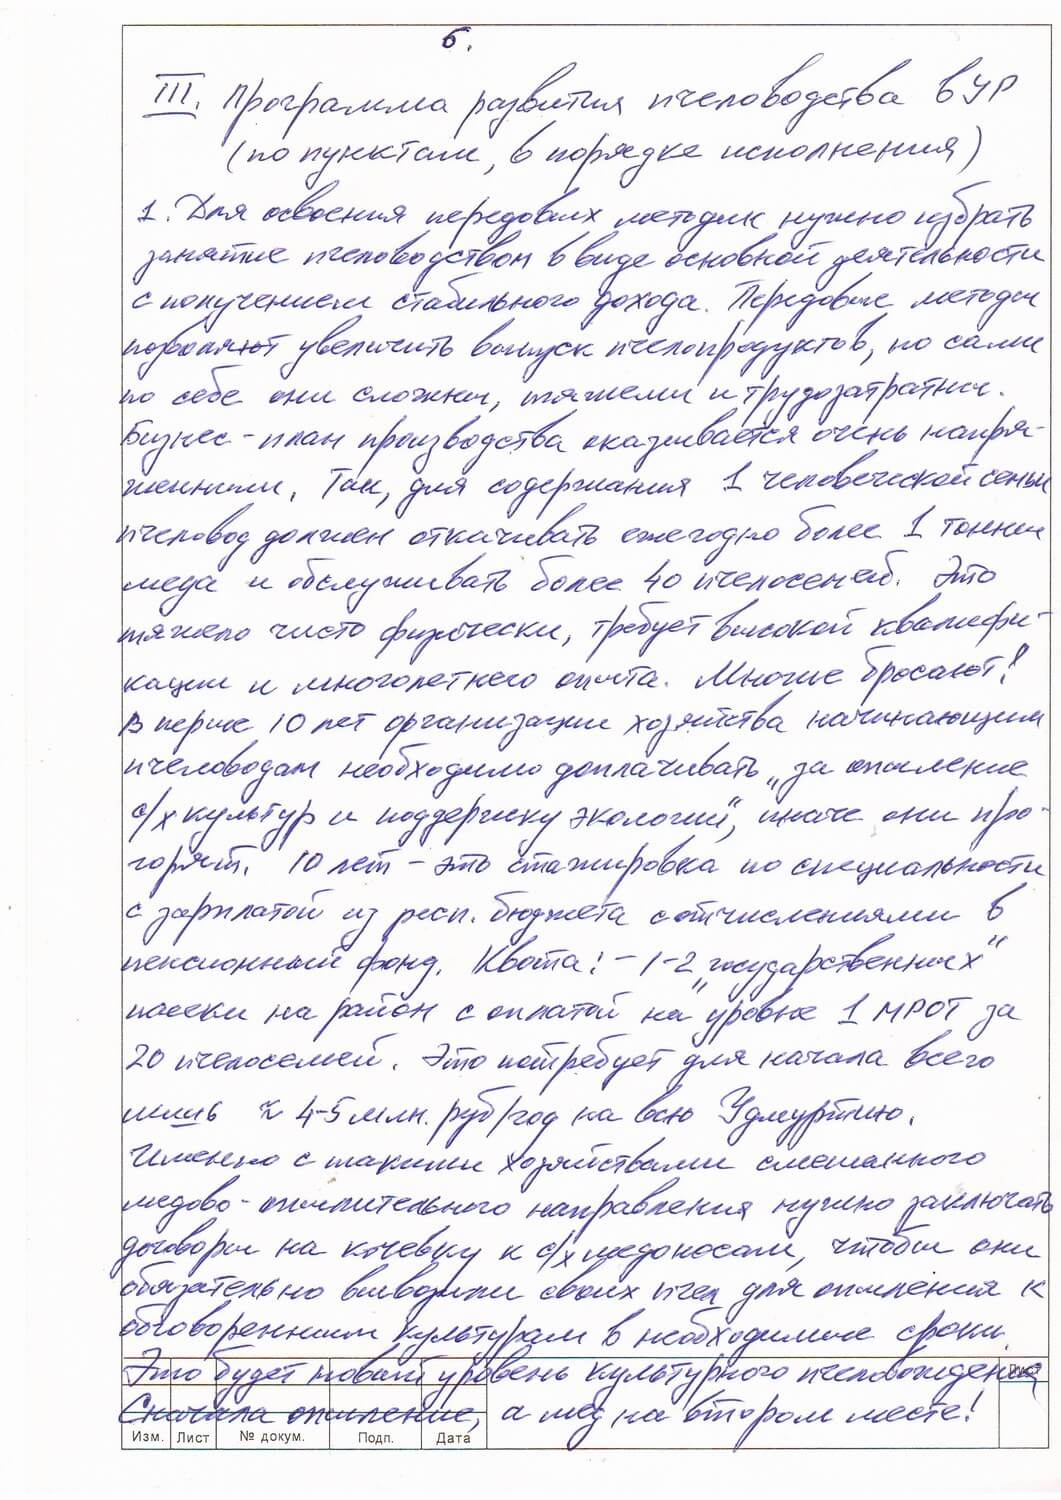 6.
III. Программа развития пчеловодства в УР
(по пунктам, в порядке исполнения)
1. Для освоения передовых методик нужно избрать
занятие пчеловодством в виде основной деятельности
с получением стабильного дохода. Передовые методы
позволяют увеличить выпуск пчелопродуктов, но сами
по себе они сложны, тяжелы и трудозатратны.
Бизнес-план производства оказывается очень напря-
женным. Так, для содержания 1 человеческой семьи
пчеловод должен откачивать ежегодно более 1 тонны
меда и обслуживать более 40 пчелосемей. Это
тяжело чисто физически, требует высокой квалифи-
кации и многолетнего опыта. Многие бросают!
В первые 10 лет организации хозяйства начинающим
пчеловодам необходимо доплачивать „за опыление
с/х культур и поддержку экологии", иначе они про-
горят. 10 лет – это стажировка по специальности
с зарплатой из респ. бюджета с отчислениями в
пенсионный фонд. Квота: – 1-2 „государственных"
пасеки на район с оплатой на уровне 1 МРОТ за
20 пчелосемей. Это потребует для начала всего
лишь ≈ 4-5 млн. руб/год на всю Удмуртию.
Именно с такими хозяйствами смешанного
медово-опылительного направления нужно заключать
договоры на кочевку к с/х медоносам, чтобы они
обязательно вывозили своих пчел для опыления к
обговоренным культурам в необходимые сроки.
Это будет новый уровень культурного пчеловождения
Сначала опыление, а мед на втором месте!
Изм. Лист № докум. Подп. Дата Лист